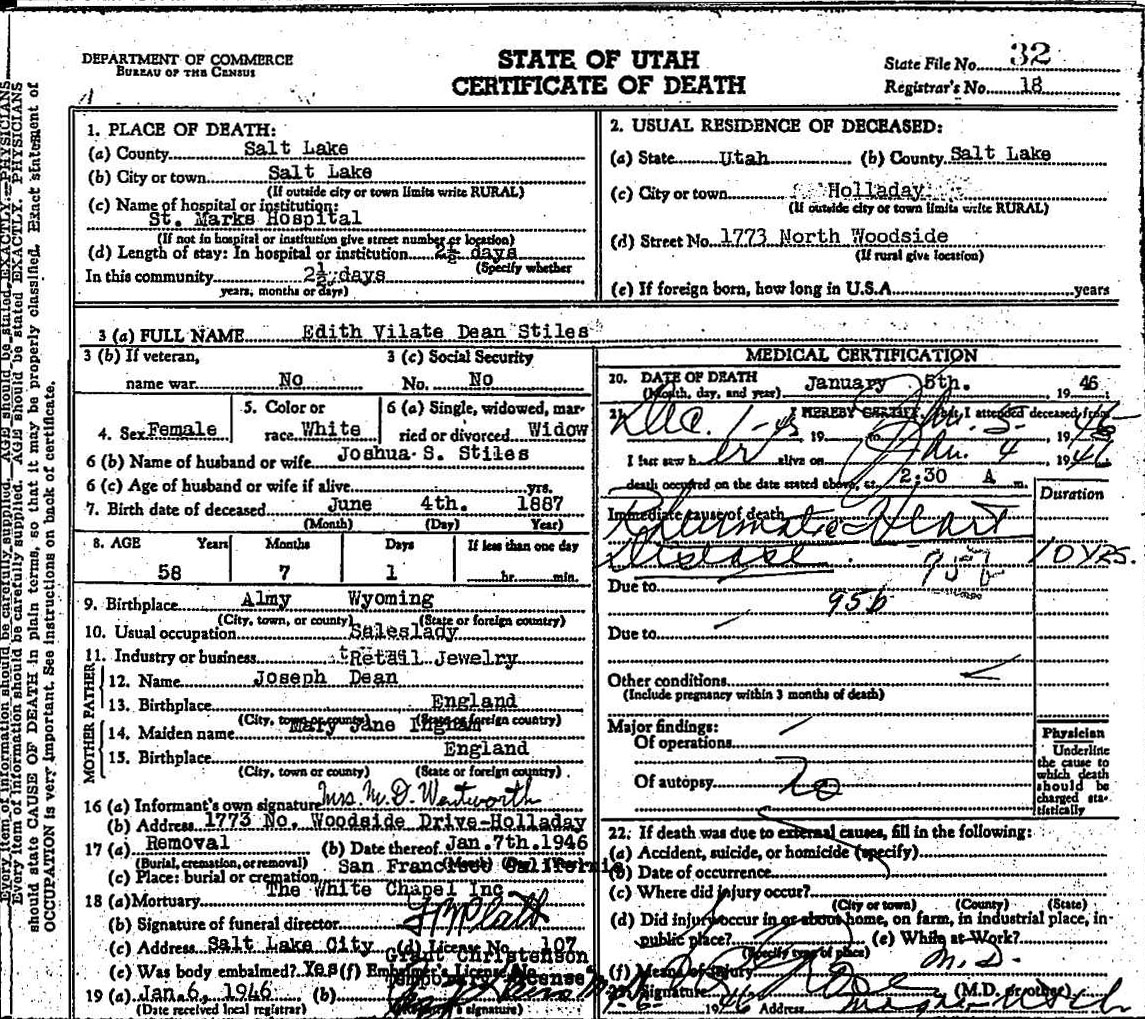 DEPARTMENT OF COMMERCE
BUREAU OF THE CENSUS
STATE OF UTAH
CERTIFICATE OF DEATH
State File No. 32
Registrar's No. 18
1. PLACE OF DEATH:
(a) County Salt Lake
(b) City or town Salt Lake
(If outside city or town limits write RURAL)
(c) Name of hospital or institution:
St. Marks Hospital
(If not in hospital or institution give street number or location)
(d) Length of stay: In hospital or institution 2½ days
(Specify whether
In this community 2½ days
years, months or days)
2. USUAL RESIDENCE OF DECEASED:
(a) State Utah (b) County Salt Lake
(c) City or town Holladay
(If outside city or town limits write RURAL)
(d) Street No. 1773 North Woodside
(If rural give location)
(e) If foreign born, how long in U.S.A. years
3 (a) FULL NAME Edith Vilate Dean Stiles
3 (b) If veteran,
name war No
3 (c) Social Security
No. No
4. Sex Female
5. Color or
race White
6 (a) Single, widowed, mar-
ried or divorced Widow
6 (b) Name of husband or wife Joshua S. Stiles
6 (c) Age of husband or wife if alive yrs.
7. Birth date of deceased June 4th. 1887
(Month) (Day) Year)
8. AGE Years Months Days If less than one day
58 7 1 hr. min.
9. Birthplace Almy Wyoming
(City, town, or county) (State or foreign country)
10. Usual occupation Saleslady
11. Industry or business Retail Jewelry
FATHER
12. Name Joseph Dean
13. Birthplace England
(City, town or county) (State or foreign country)
MOTHER
14. Maiden name Mary Jane Ingham
15. Birthplace England
(City, town or county) (State or foreign country)
16 (a) Informant's own signature Mrs. M. D. Wentworth
(b) Address 1773 No. Woodside Drive-Holladay
17 (a) Removal (b) Date thereof Jan.7th.1946
(Burial, cremation, or removal) (Month) (Day) (Year)
(c) Place: burial or cremation San Francisco California
18 (a) Mortuary The White Chapel Inc
(b) Signature of funeral director
(c) Address Salt Lake City (d) License No. 107
Grant Christenson
(e) Was body embalmed? Yes (f) Embalmer's License No.
Temporary License
19 (a) Jan.6, 1946 (b)
(Date received local registrar) (Registrar's signature)
MEDICAL CERTIFICATION
20. DATE OF DEATH January 5th. 1946
(Month, day, and year)
21. I HEREBY CERTIFY, that I attended deceased from
Dec. 1-45 19 to Jan. 5- 1946
I last saw her alive on Jan. 4, 1946
death occurred on the date stated above, at 2:30 A m.
Duration
Immediate cause of death
Rheumatic Heart
Disease. 10 yrs.
Due to
95b
Due to
Other conditions
(Include pregnancy within 3 months of death)
Major findings:
Of operations
Of autopsy No
Physician
Underline
the cause to
which death
should be
charged sta-
tistically
22. If death was due to external causes, fill in the following:
(a) Accident, suicide, or homicide (specify)
(b) Date of occurrence
(c) Where did injury occur?
(City or town) (County) (State)
(d) Did injury occur in or about home, on farm, in industrial place, in-
public place? (e) While at Work?
(Specify type of place)
(f) Means of injury M.D.
23. Signature (M.D. or other)
1946 Address
Every item of information should be carefully supplied. AGE should be stated EXACTLY. PHYSICIANS
should state CAUSE OF DEATH in plain terms, so that it may be properly classified. Exact statement of
OCCUPATION is very important. See instructions on back of certificate.